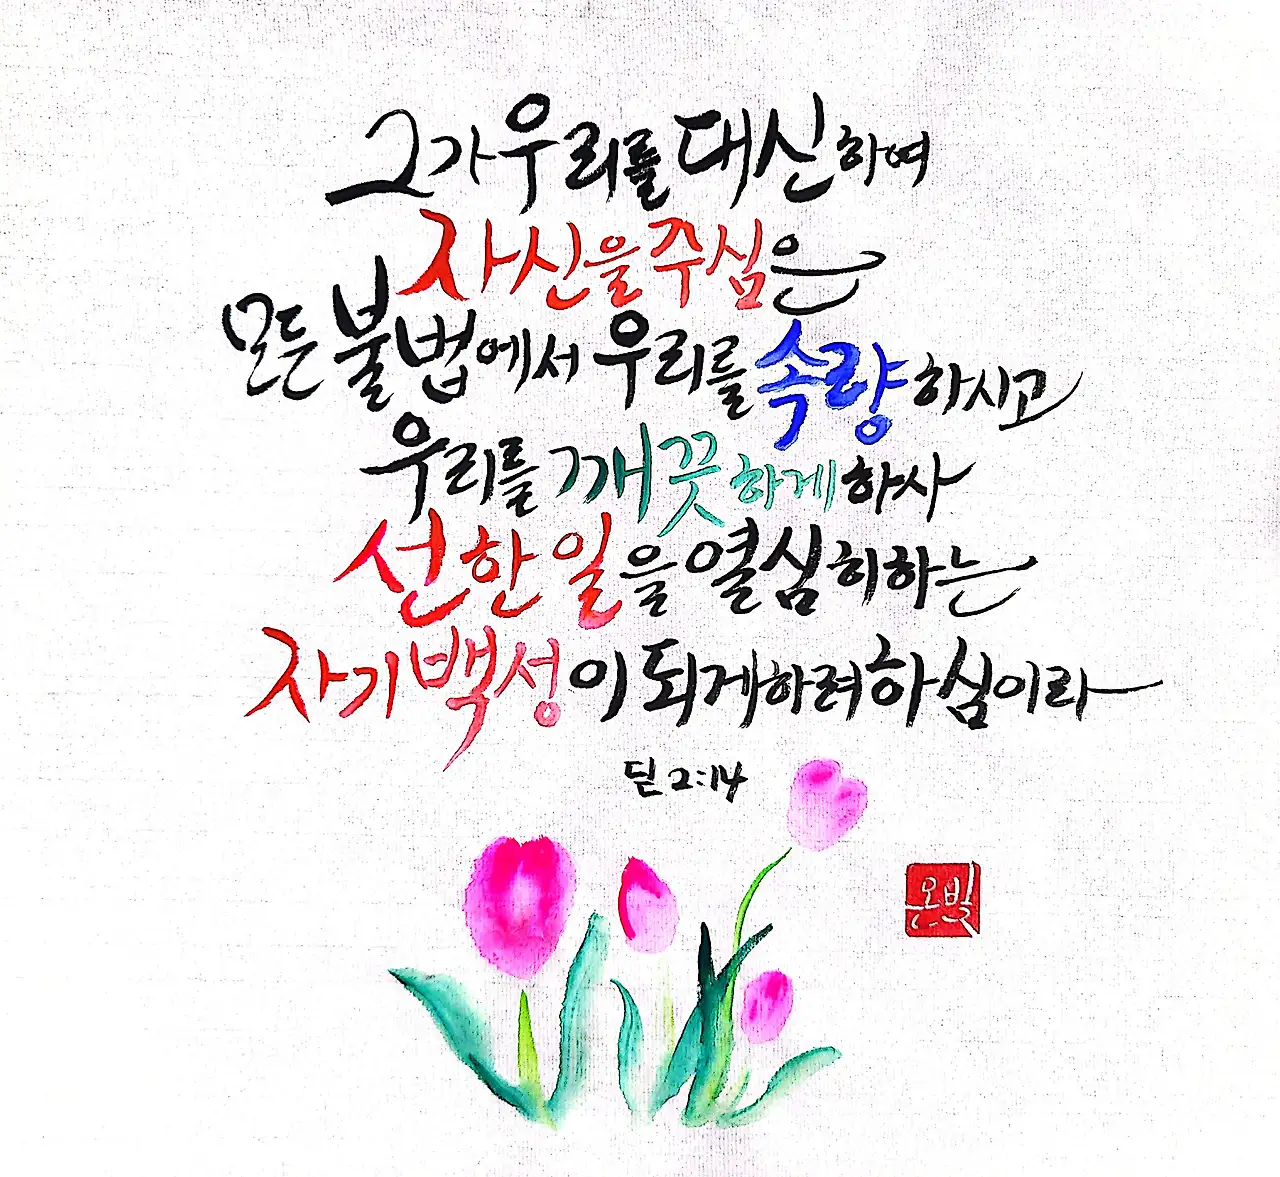 그가 우리를 대신하여
자신을 주심은
모든 불법에서 우리를 속량하시고
우리를 깨끗하게 하사
선한 일을 열심히 하는
자기 백성이 되게 하려 하심이라
딛 2:14
은빛